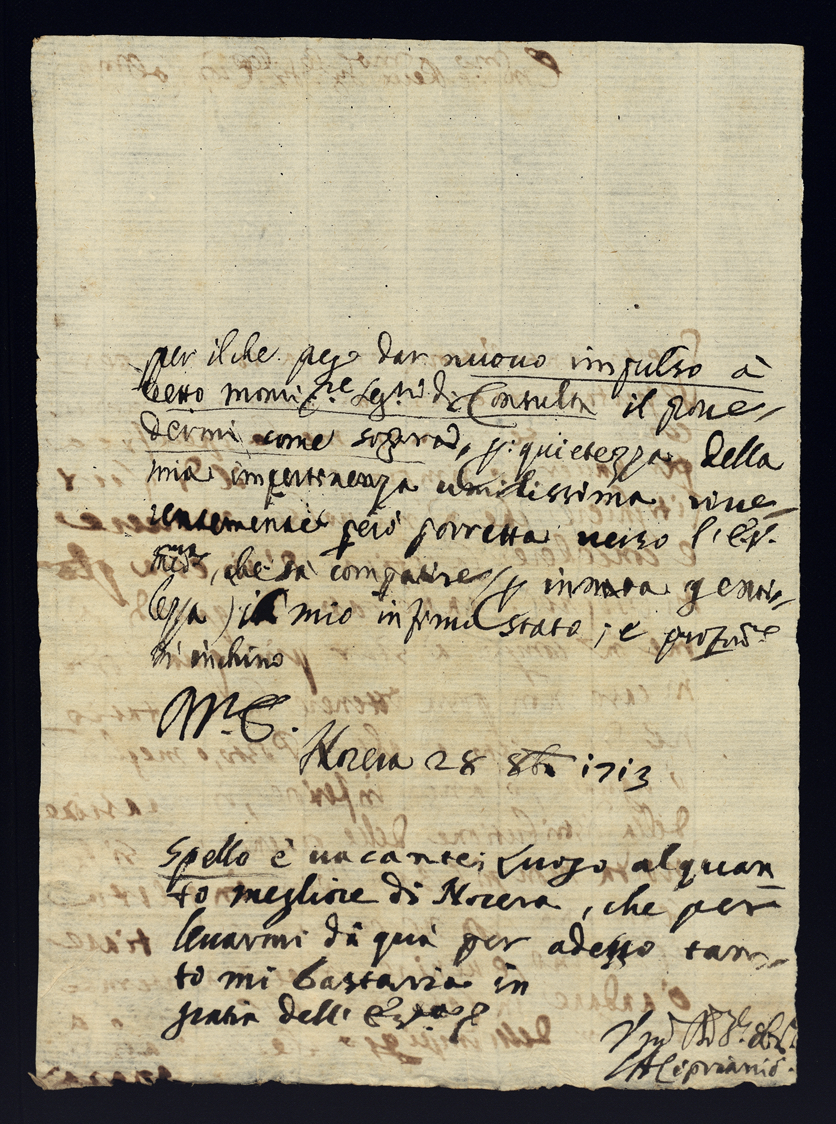 per il che pego dar nuovo impulso à
detto monsig.re Seg.rio di Consulta il prove-
dermi come sopra, p: quietezza della
mia impertinenza umilissima rive-
rentemente però porretta verso l'
che sà compatire (p innata genti-
lezza) il mio infimo stato; e profond.e
m'inchino
Nocera 28 8bre 1713
Spello è vacante; Luogo alquan
to megliore di Nocera, che per
levarmi di quà per adesso tan-
to mi bastaria in
gratia dell'
Cipriani